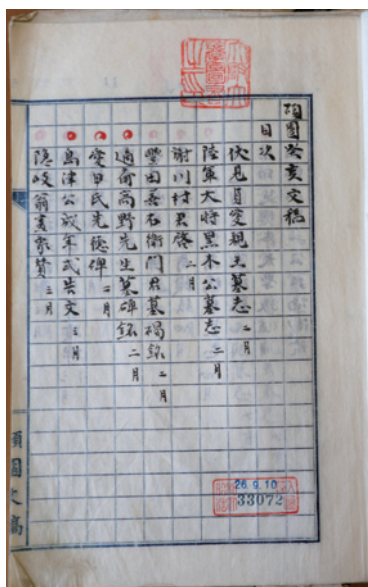 碩園癸亥文稿
目次
伏見貞愛親王墓志 二月
陸軍大将黒木公墓志 二月
謝川村君啓 二月
豐田善右衛門君墓碣銘 二月
適斎高野先生墓碑銘 二月
愛甲氏先德碑 二月
島津公成年式告文 三月
隠岐翁畫象賛 三月
碩園文稿
26.9.10
33072